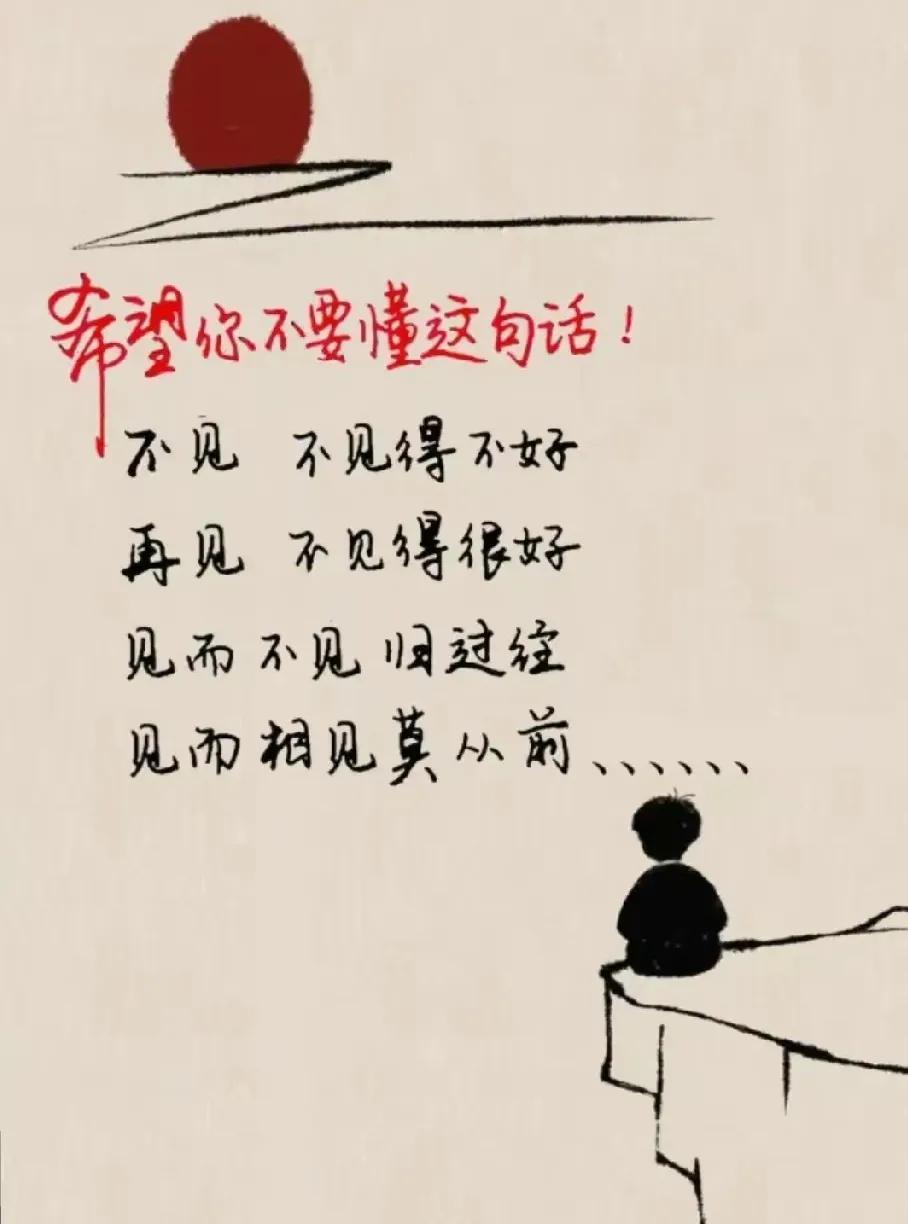 希望你不要懂这句话！
不见 不见得不好
再见 不见得很好
见而不见归过经
见而相见莫从前、、、、、、